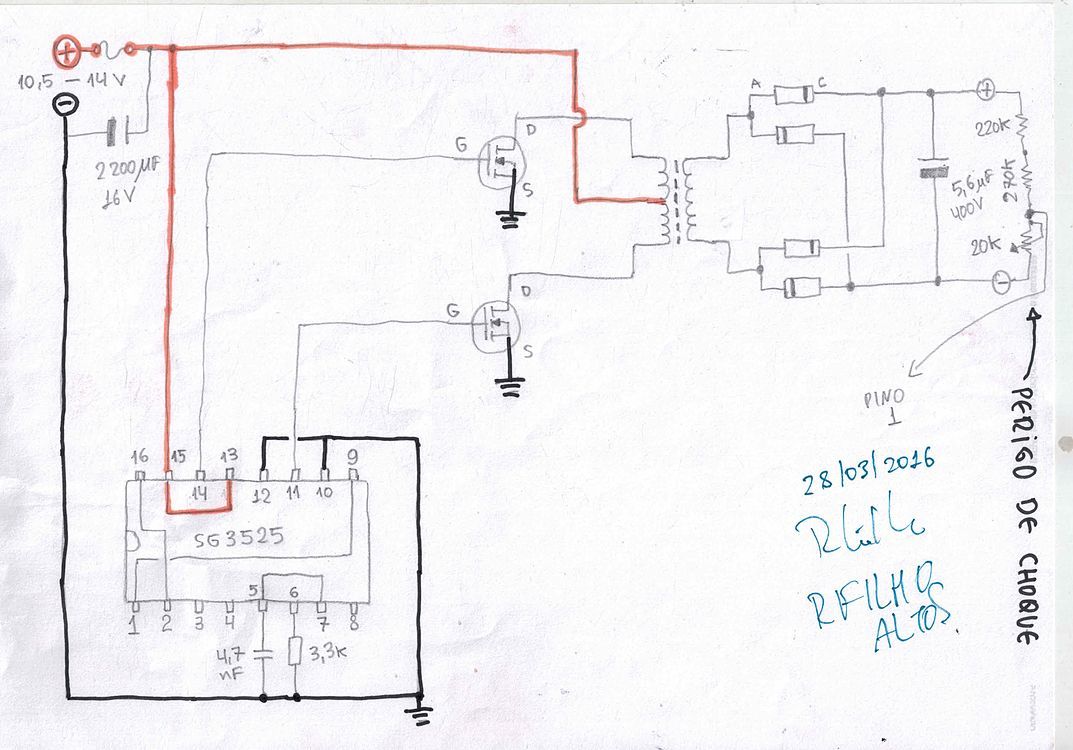 +
10,5 – 14V
−
2200µF
16V
G
D
S
G
D
S
A
C
+
220K
270K
5,6µF
400V
20K
−
PINO
1
PERIGO DE CHOQUE
28/03/2016
RFILHO
ALTOS.
16
15
14
13
12
11
10
9
SG3525
5
6
1
2
3
4
7
8
4,7
nF
3,3K